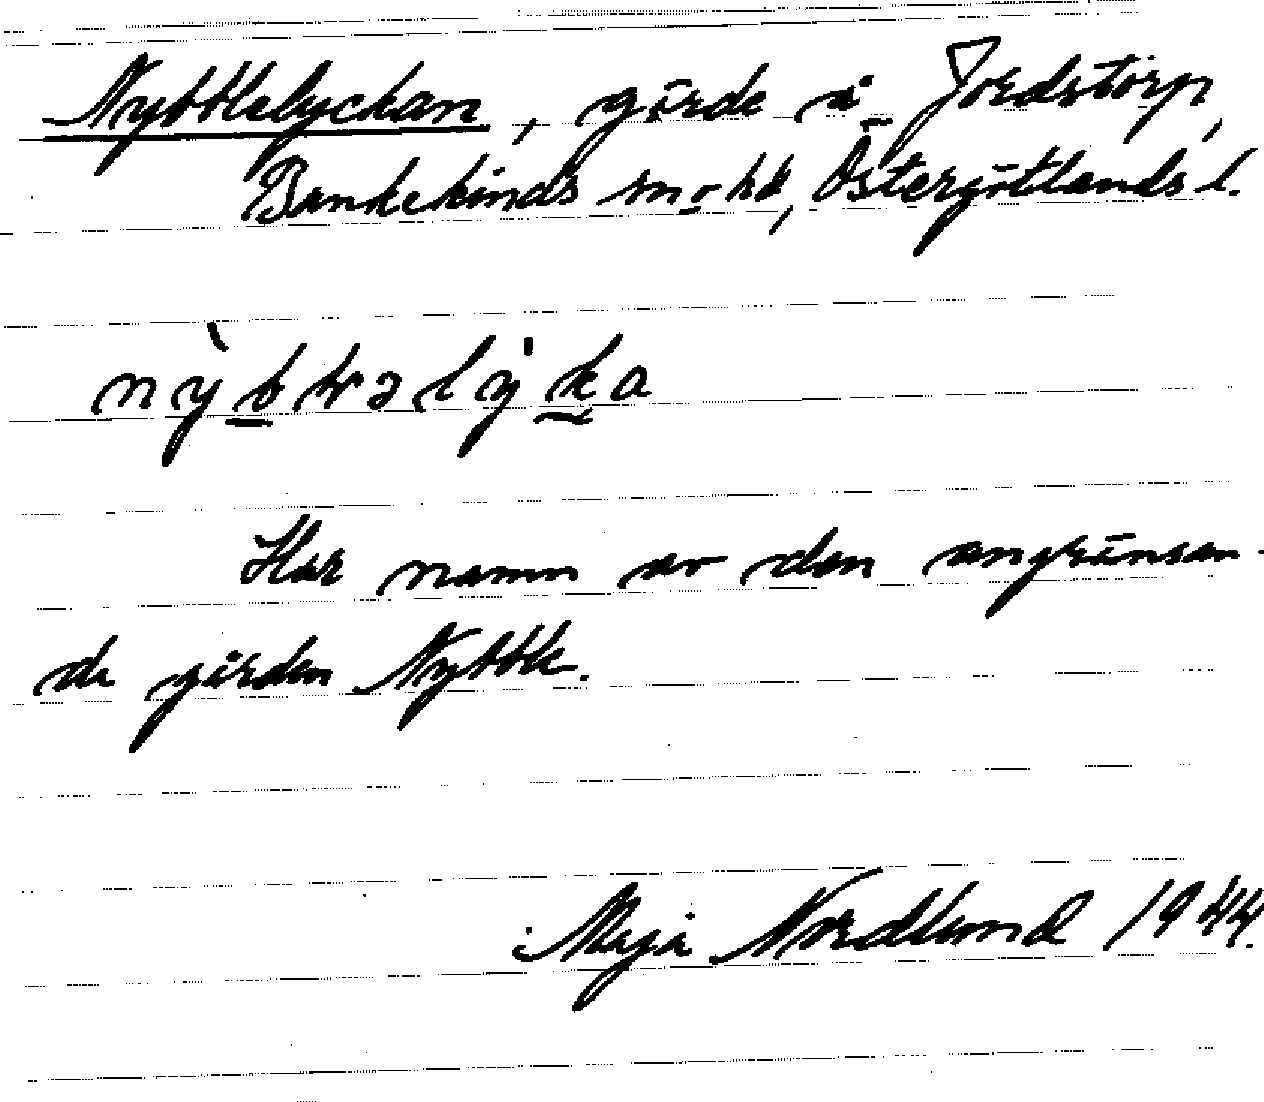 Nybblelyckan, gärde i Jordstorp,
Bankekinds sn o hd, Östergötlands l.
Har namn av den angränsan-
de gården Nybble.
Maja Nordlund 1944.